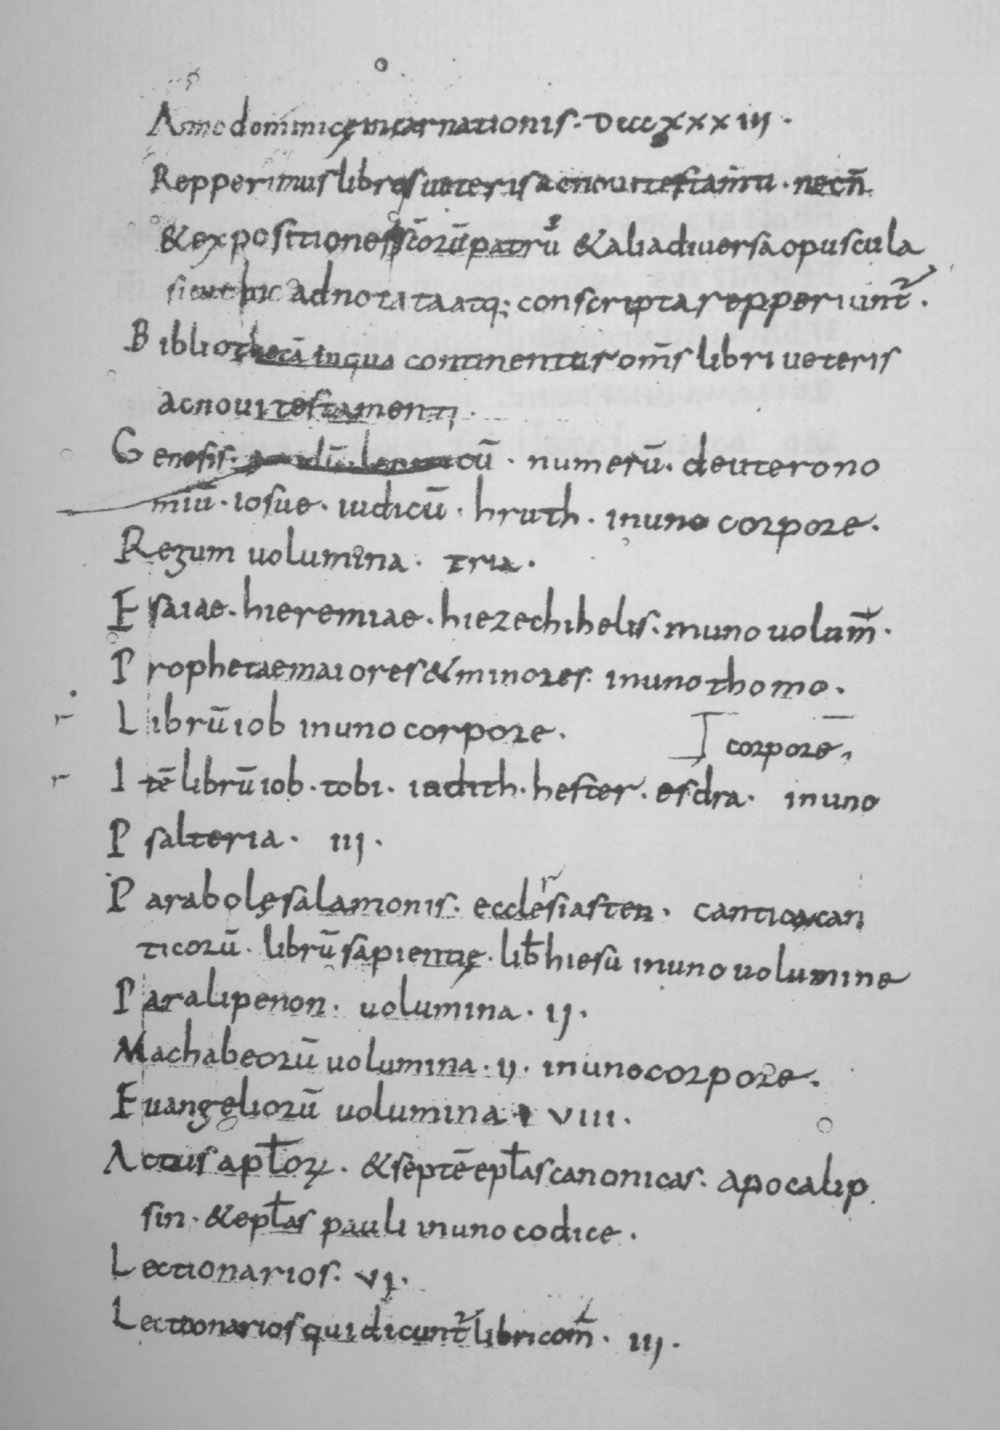 Anno dominicę incarnationis. Dccc xxx iii.
Repperimus libros ueteris ac noui testam̄ti. necn̄
& expositiones sc̄orū patrū & alia diuersa opuscula
sicut hic adnotata atq; conscripta reppeririunt̄.
Bibliothecā in qua continentur om̄s libri ueteris
ac noui testamenti.
Genesis. cū. numerū. deuterono
miū. iosue. iudicū. hruth. in uno corpore.
Regum uolumina. tria.
Esaiae. hieremiae. hiezechihelis. in uno uolum̄.
Prophetae maiores & minores. in uno thomo.
Librū iob in uno corpore.
corpore.
Itē librū iob. tobi. iudith. hester. esdra. in uno
Psalteria. iii.
Parabolę salamonis. ecclesiasten. cantica can
ticorū. librū sapientię. lib̄ hiesu in uno uolumine
Paralipenon. uolumina. ii.
Machabeorū uolumina. ii. in uno corpore.
Euangeliorū uolumina viii.
Actus apl̄oꝝ. & septē epl̄as canonicas. apocalip
sin. & epl̄as pauli in uno codice.
Lectionarios. vi.
Lectionarios qui dicunt̄ libri com̄. iii.